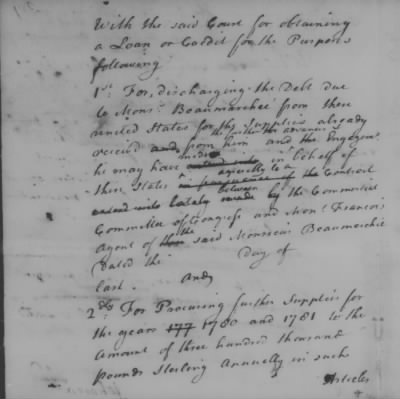 With the said Court for obtaining
a Loan or Credit for the Purposes
following
1st. For, discharging the Debt due
to Monsr. Beaumarchee from these
united States for the Supplies already
received and, from him the further advances
and the Engagemts
he may have made in behalf of
agreeably to a
these States in of the Contract
entered into lately made between by the Commercial
Committee of Congress and Monr. Francois
Agent of the said Monsieur Beaumarchie
Dated the Day of
last. And
2dly For Procuring further Supplies for
the years 177 1780 and 1781 to the
Amount of three hundred thousand
pounds Sterling Annually in such
Articles